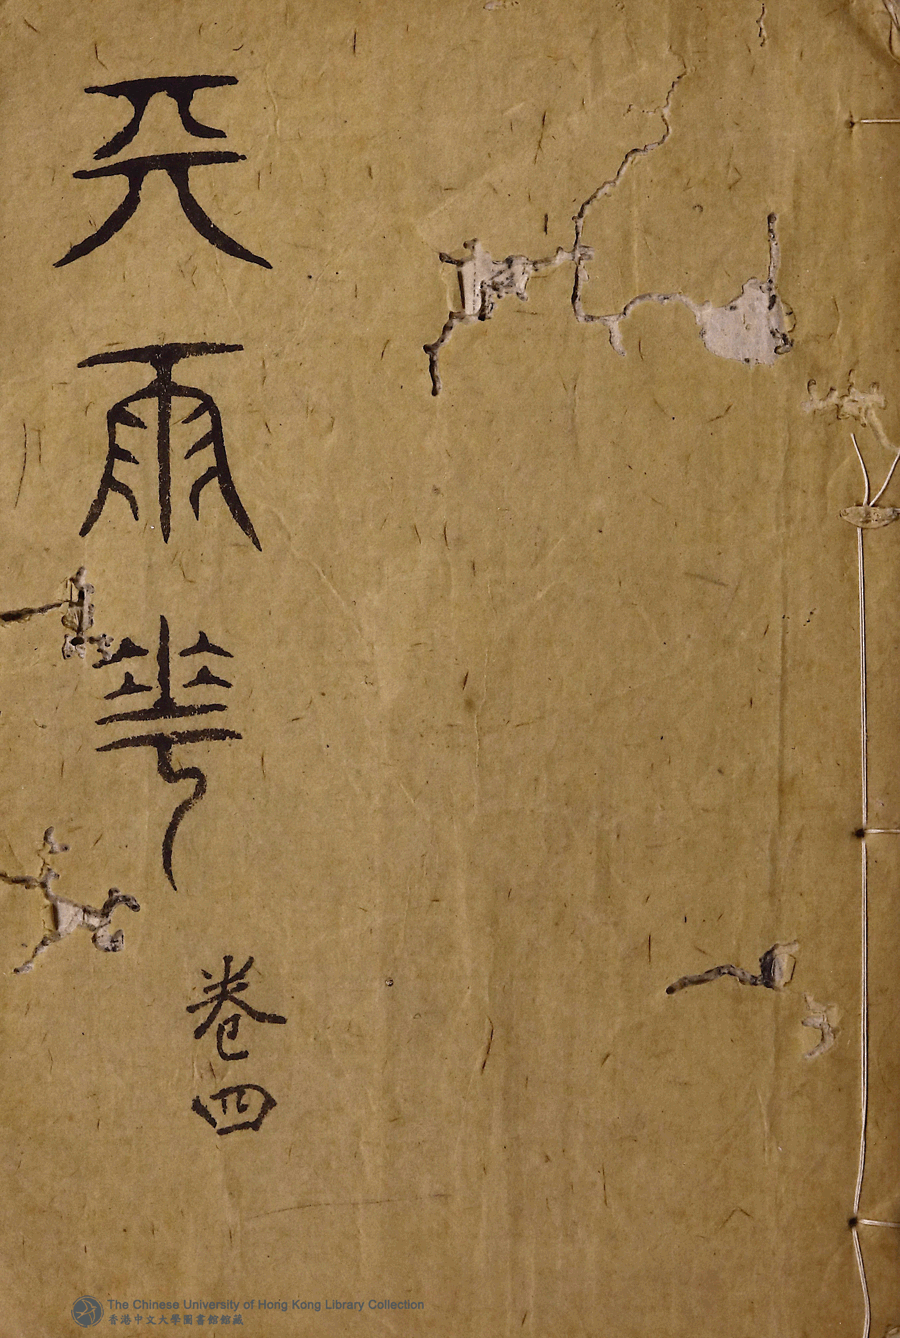 天雨花
卷四
The Chinese University of Hong Kong Library Collection
香港中文大學圖書館館藏